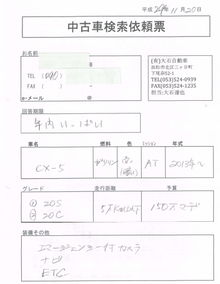 平成29年11月20日
中古車検索依頼票
お名前
(有)大石自動車
浜松市北区三ヶ日町
下尾奈52-1
TEL (053)524-0939
FAX (053)525-1235
担当 大石達也
TEL (090)
FAX ( )
e-メール @
回答期限
年内いっぱい
車名 燃料 色 ミッション 年式
CX-5 ガソリン 白 AT 2013~
グレード 走行距離 予算
① 20S 5万km以下 150万マデ
② 20C
装備その他
カメラ
ナビ
ETC